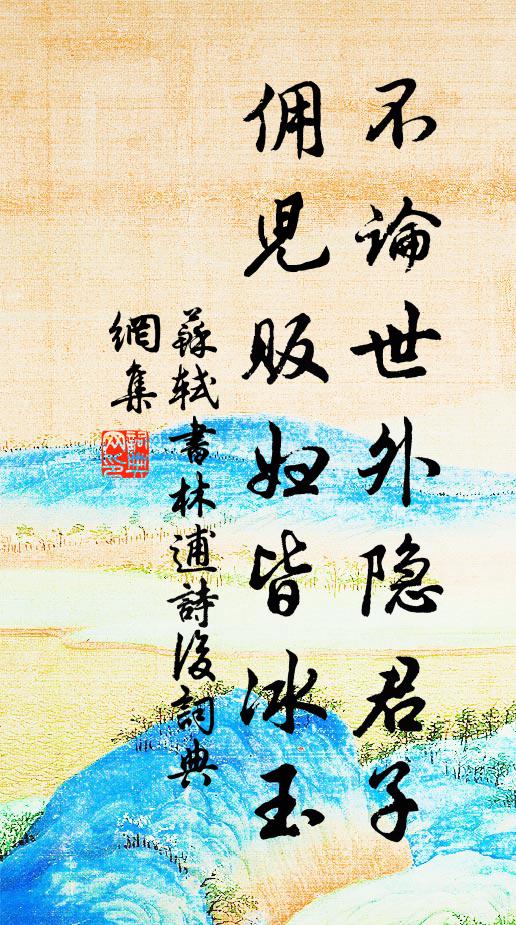 不論世外隐君子
佣児販婦皆冰玉
蘇軾書林逋詩後詞典
網集